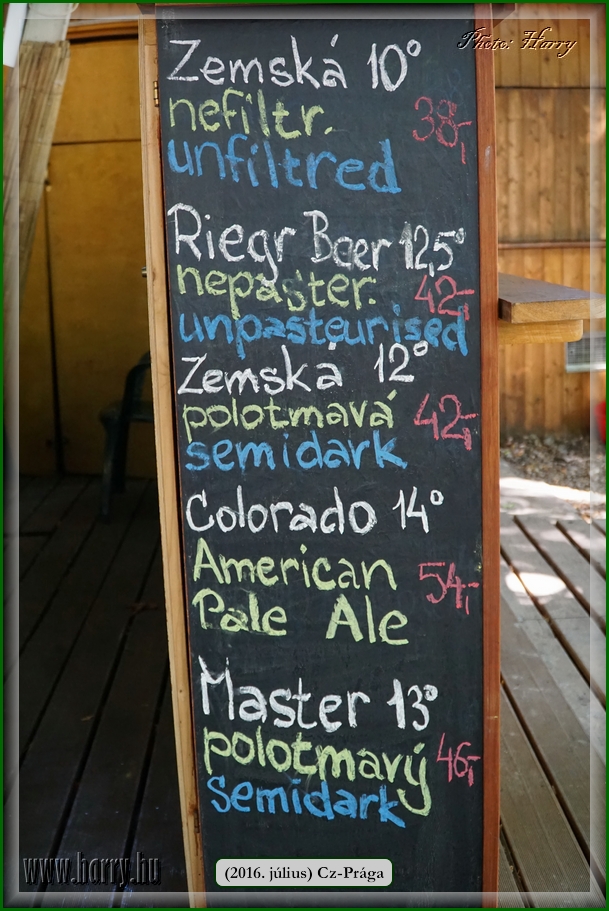 Photo: Harry
Zemská 10°
nefiltr. 38,-
unfiltred
Riegr Beer 12,5°
nepaster. 42,-
unpasteurised
Zemská 12°
polotmavá 42,-
semidark
Colorado 14°
American 54,-
Pale Ale
Master 13°
polotmavý 46,-
semidark
www.harry.hu
(2016. július) Cz-Prága